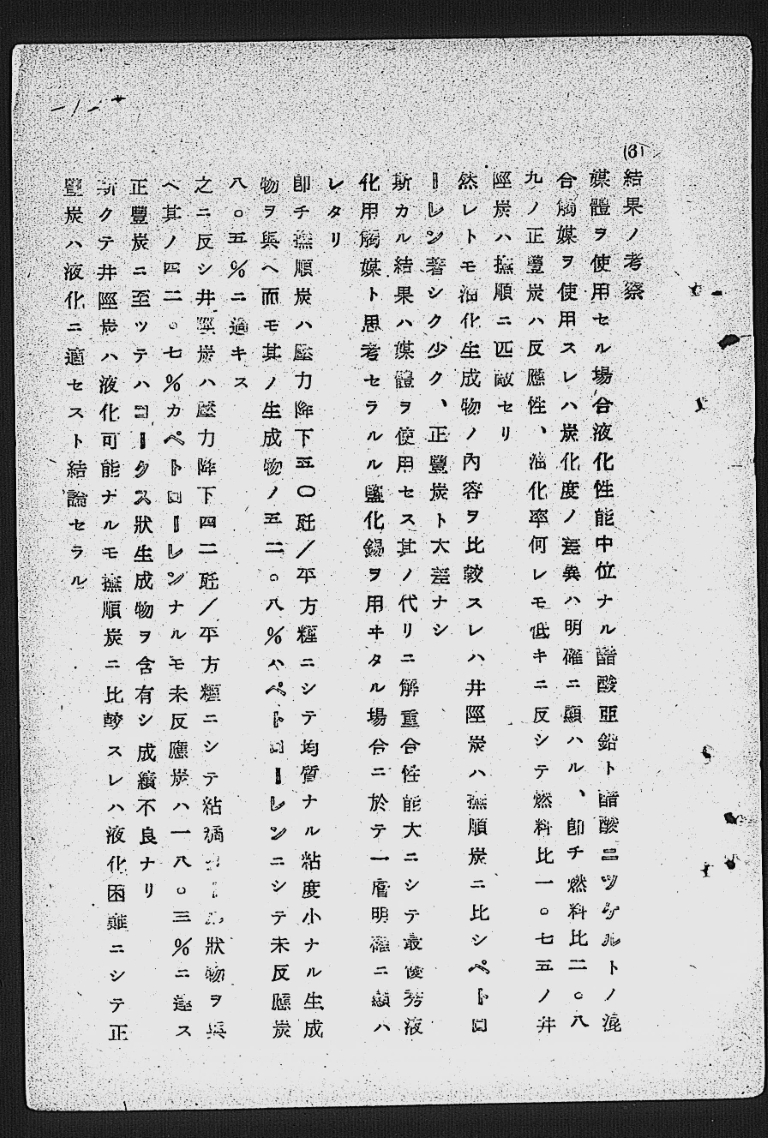 (6)
結果ノ考察
媒體ヲ使用セル場合液化性能中位ナル醋酸亞鉛ト醋酸ニツケルトノ混
合觸媒ヲ使用スレハ炭化度ノ差異ハ明確ニ顯ハル、卽チ燃料比二。八
九ノ正豐炭ハ反應性、油化率何レモ低キニ反シテ燃料比一。七五ノ井
陘炭ハ撫順ニ匹敵セリ
然レトモ油化生成物ノ內容ヲ比較スレハ井陘炭ハ撫順炭ニ比シペトロ
ーレン著シク少ク、正豐炭ト大差ナシ
斯カル結果ハ媒體ヲ使用セス其ノ代リニ解重合性能大ニシテ最優秀液
化用觸媒ト思考セラルル鹽化錫ヲ用ヰタル場合ニ於テ一層明確ニ顯ハ
レタリ
卽チ撫順炭ハ壓力降下五〇瓩/平方糎ニシテ均質ナル粘度小ナル生成
物ヲ與ヘ而モ其ノ生成物ノ五二。八%ハペトローレンニシテ未反應炭
八。五%ニ過キス
之ニ反シ井陘炭ハ壓力降下四二瓩/平方糎ニシテ粘稠タール狀物ヲ與
ヘ其ノ四二。七%カペトローレンナルモ未反應炭ハ一八。三%ニ達ス
正豐炭ニ至ツテハコークス狀生成物ヲ含有シ成績不良ナリ
斯クテ井陘炭ハ液化可能ナルモ撫順炭ニ比較スレハ液化困難ニシテ正
豐炭ハ液化ニ適セスト結論セラル